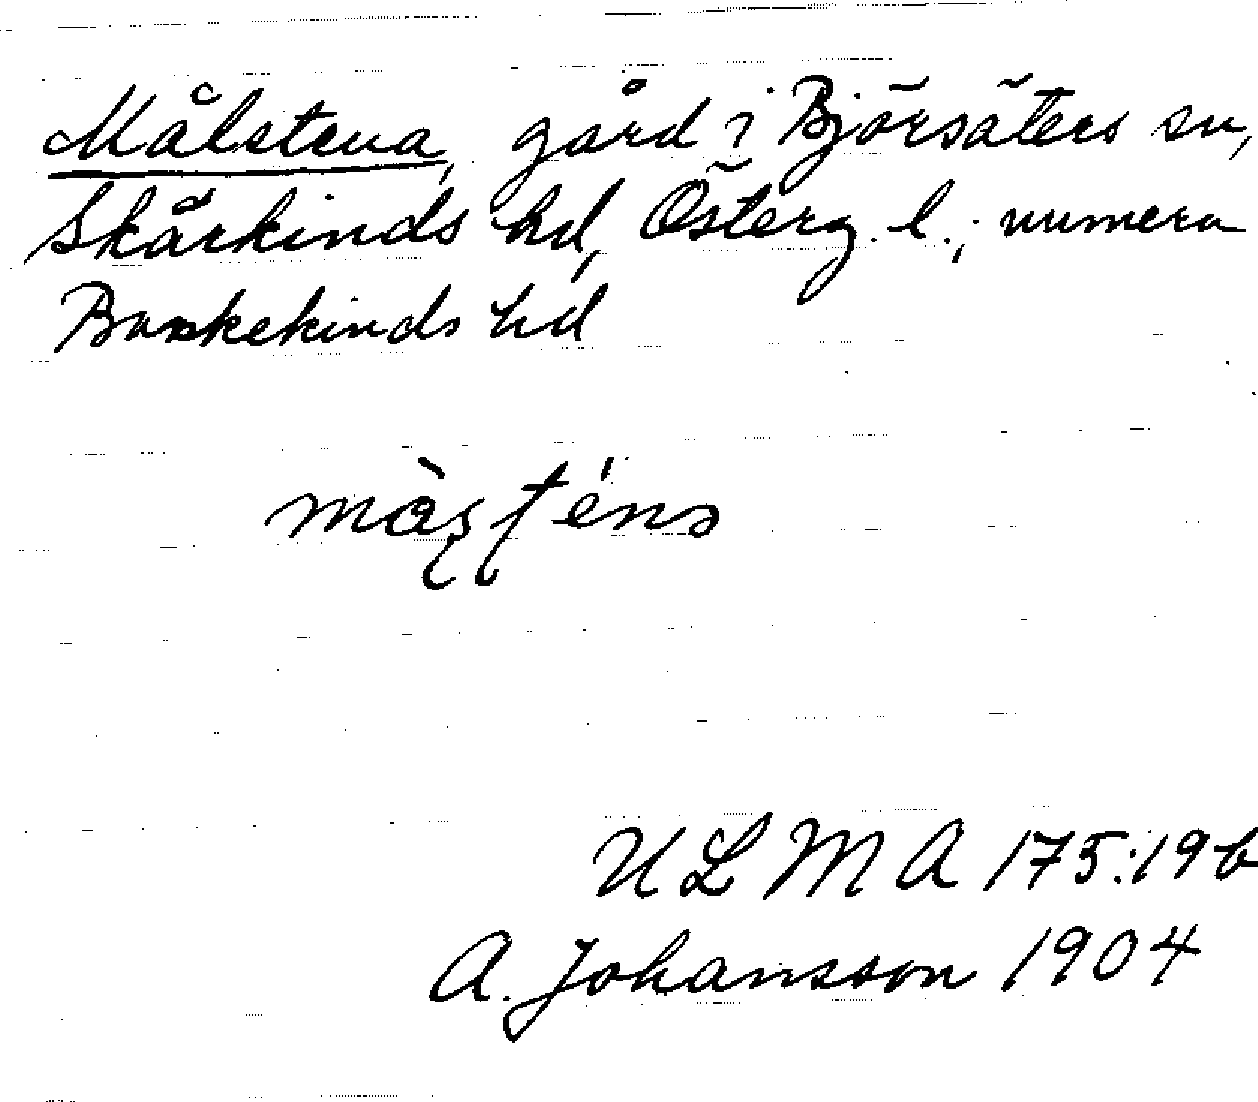 Målstena, gård i Björsäters sn,
Skärkinds hd, Österg. l.; numera
Bankekinds hd
U L M A 175:19b
A. Johansson 1904